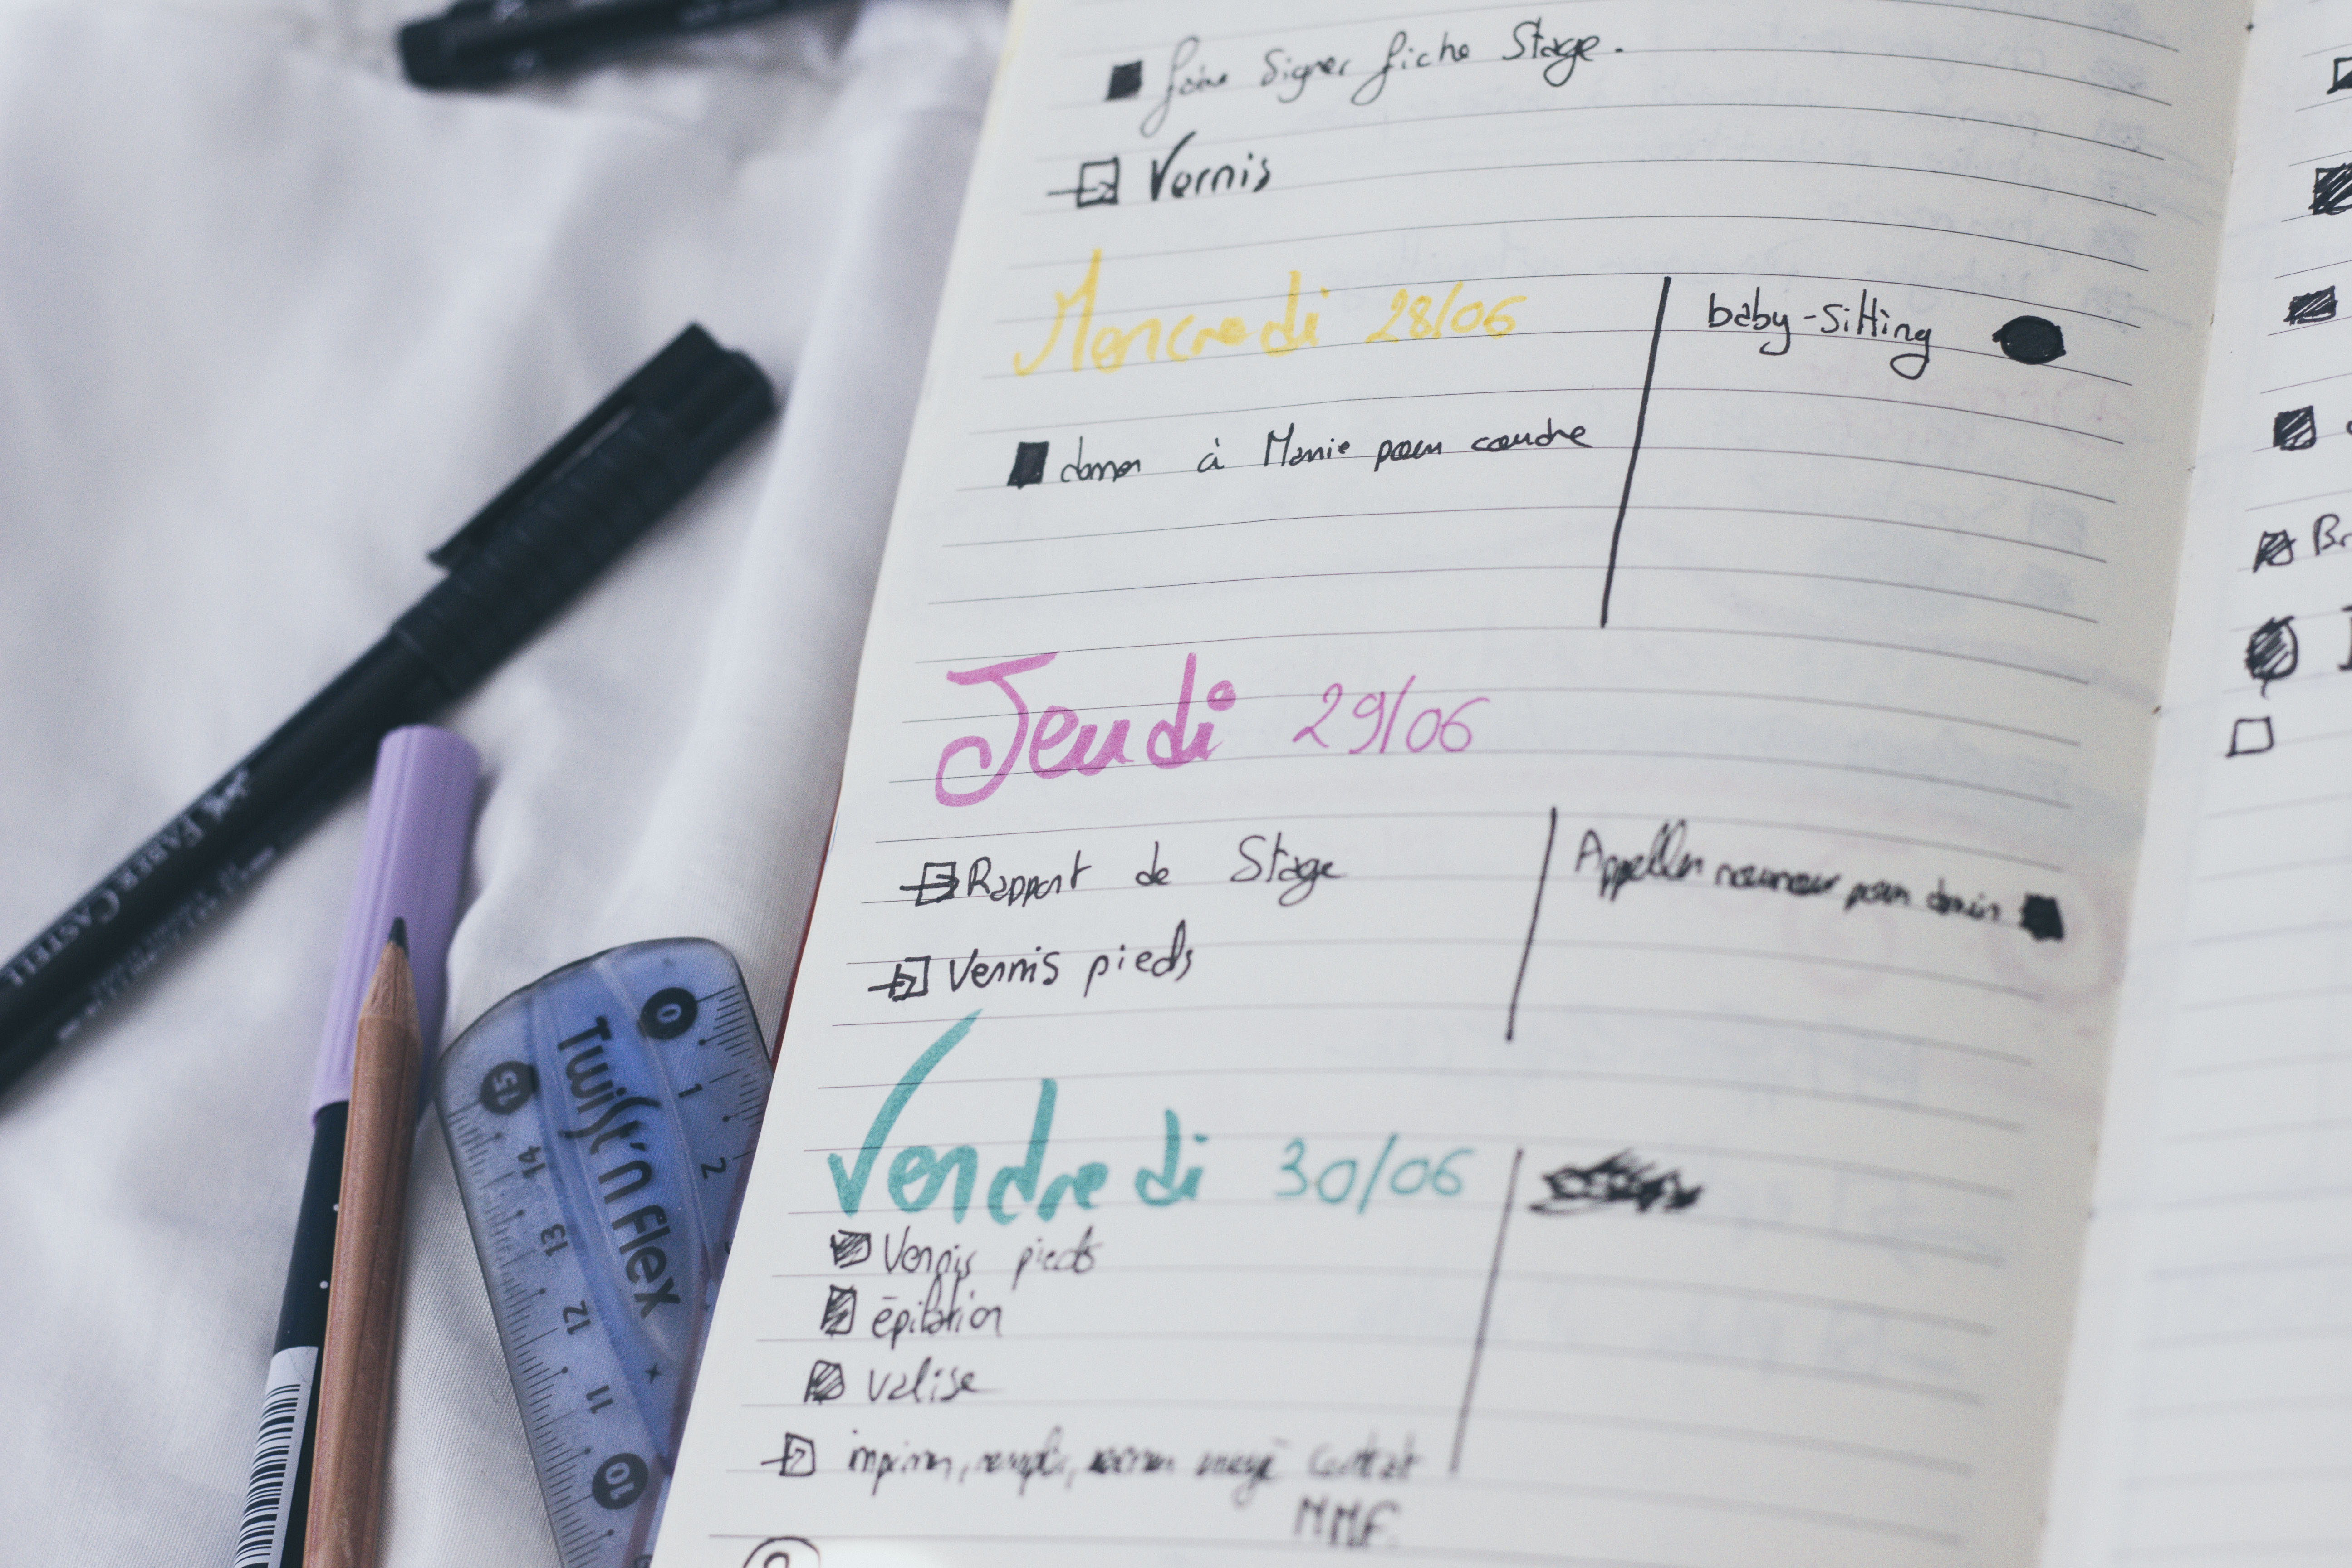 faire signer fiche Stage.
Vernis
Mercredi 28/06
baby-sitting
donner à Mamie pour coudre
Jeudi 29/06
Rapport de Stage
Appeller pour demain
Vernis pieds
Vendredi 30/06
Vernis pieds
épilation
valise
imprimer, remplir, contrat
MMF.
Br
FABER CASTELL
TWIST'n FLEX
0
1
2
15
14
13
12
11
10